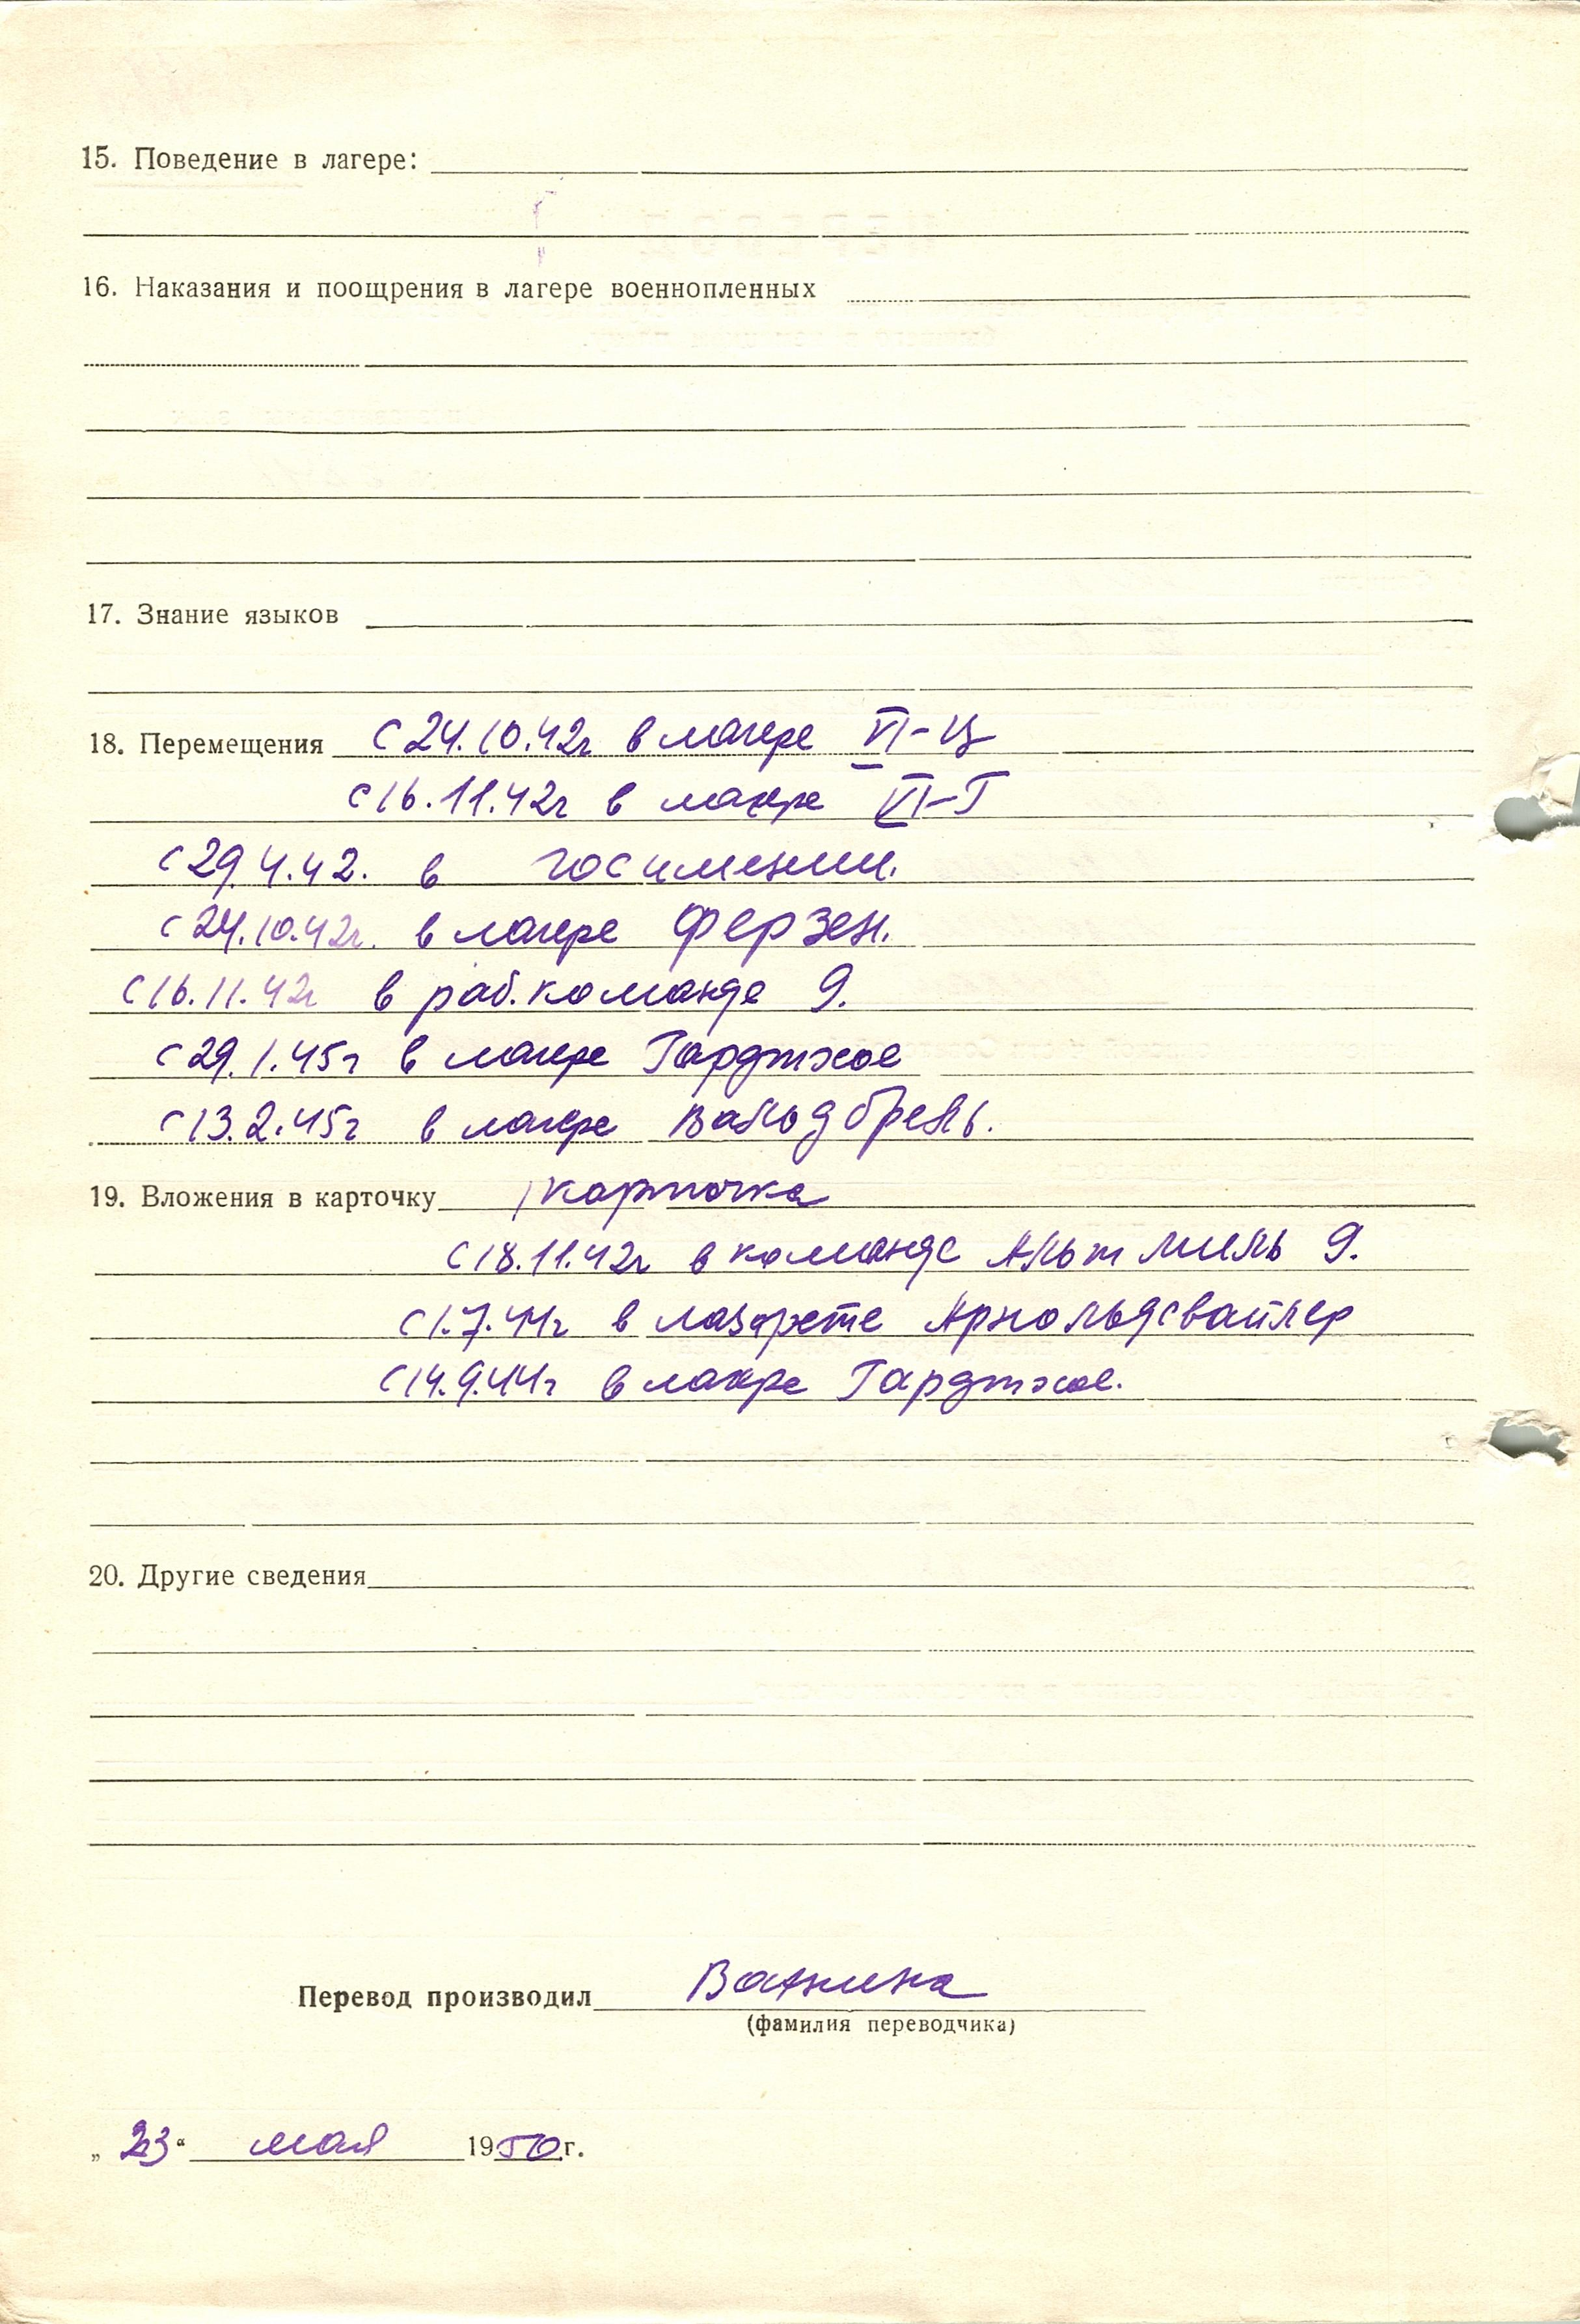 15. Поведение в лагере:
16. Наказания и поощрения в лагере военнопленных
17. Знание языков
18. Перемещения с 24.10.42г в лагере VI-Ц
с 16.11.42г в лагере VI-Г
с 29.4.42. в госимении.
с 24.10.42г. в лагере Ферзен.
с 16.11.42г в раб.команде 9.
с 29.1.45г в лагере
с 13.2.45г в лагере Вальдбрель.
19. Вложения в карточку 1 карточка
с 18.11.42г в команде Альт 9.
с 1.7.44г в лазарете Арнольдсвайлер
с 14.9.44г в лагере
20. Другие сведения
Перевод производил Ванина
(фамилия переводчика)
„ 23 “ мая 1950 г.